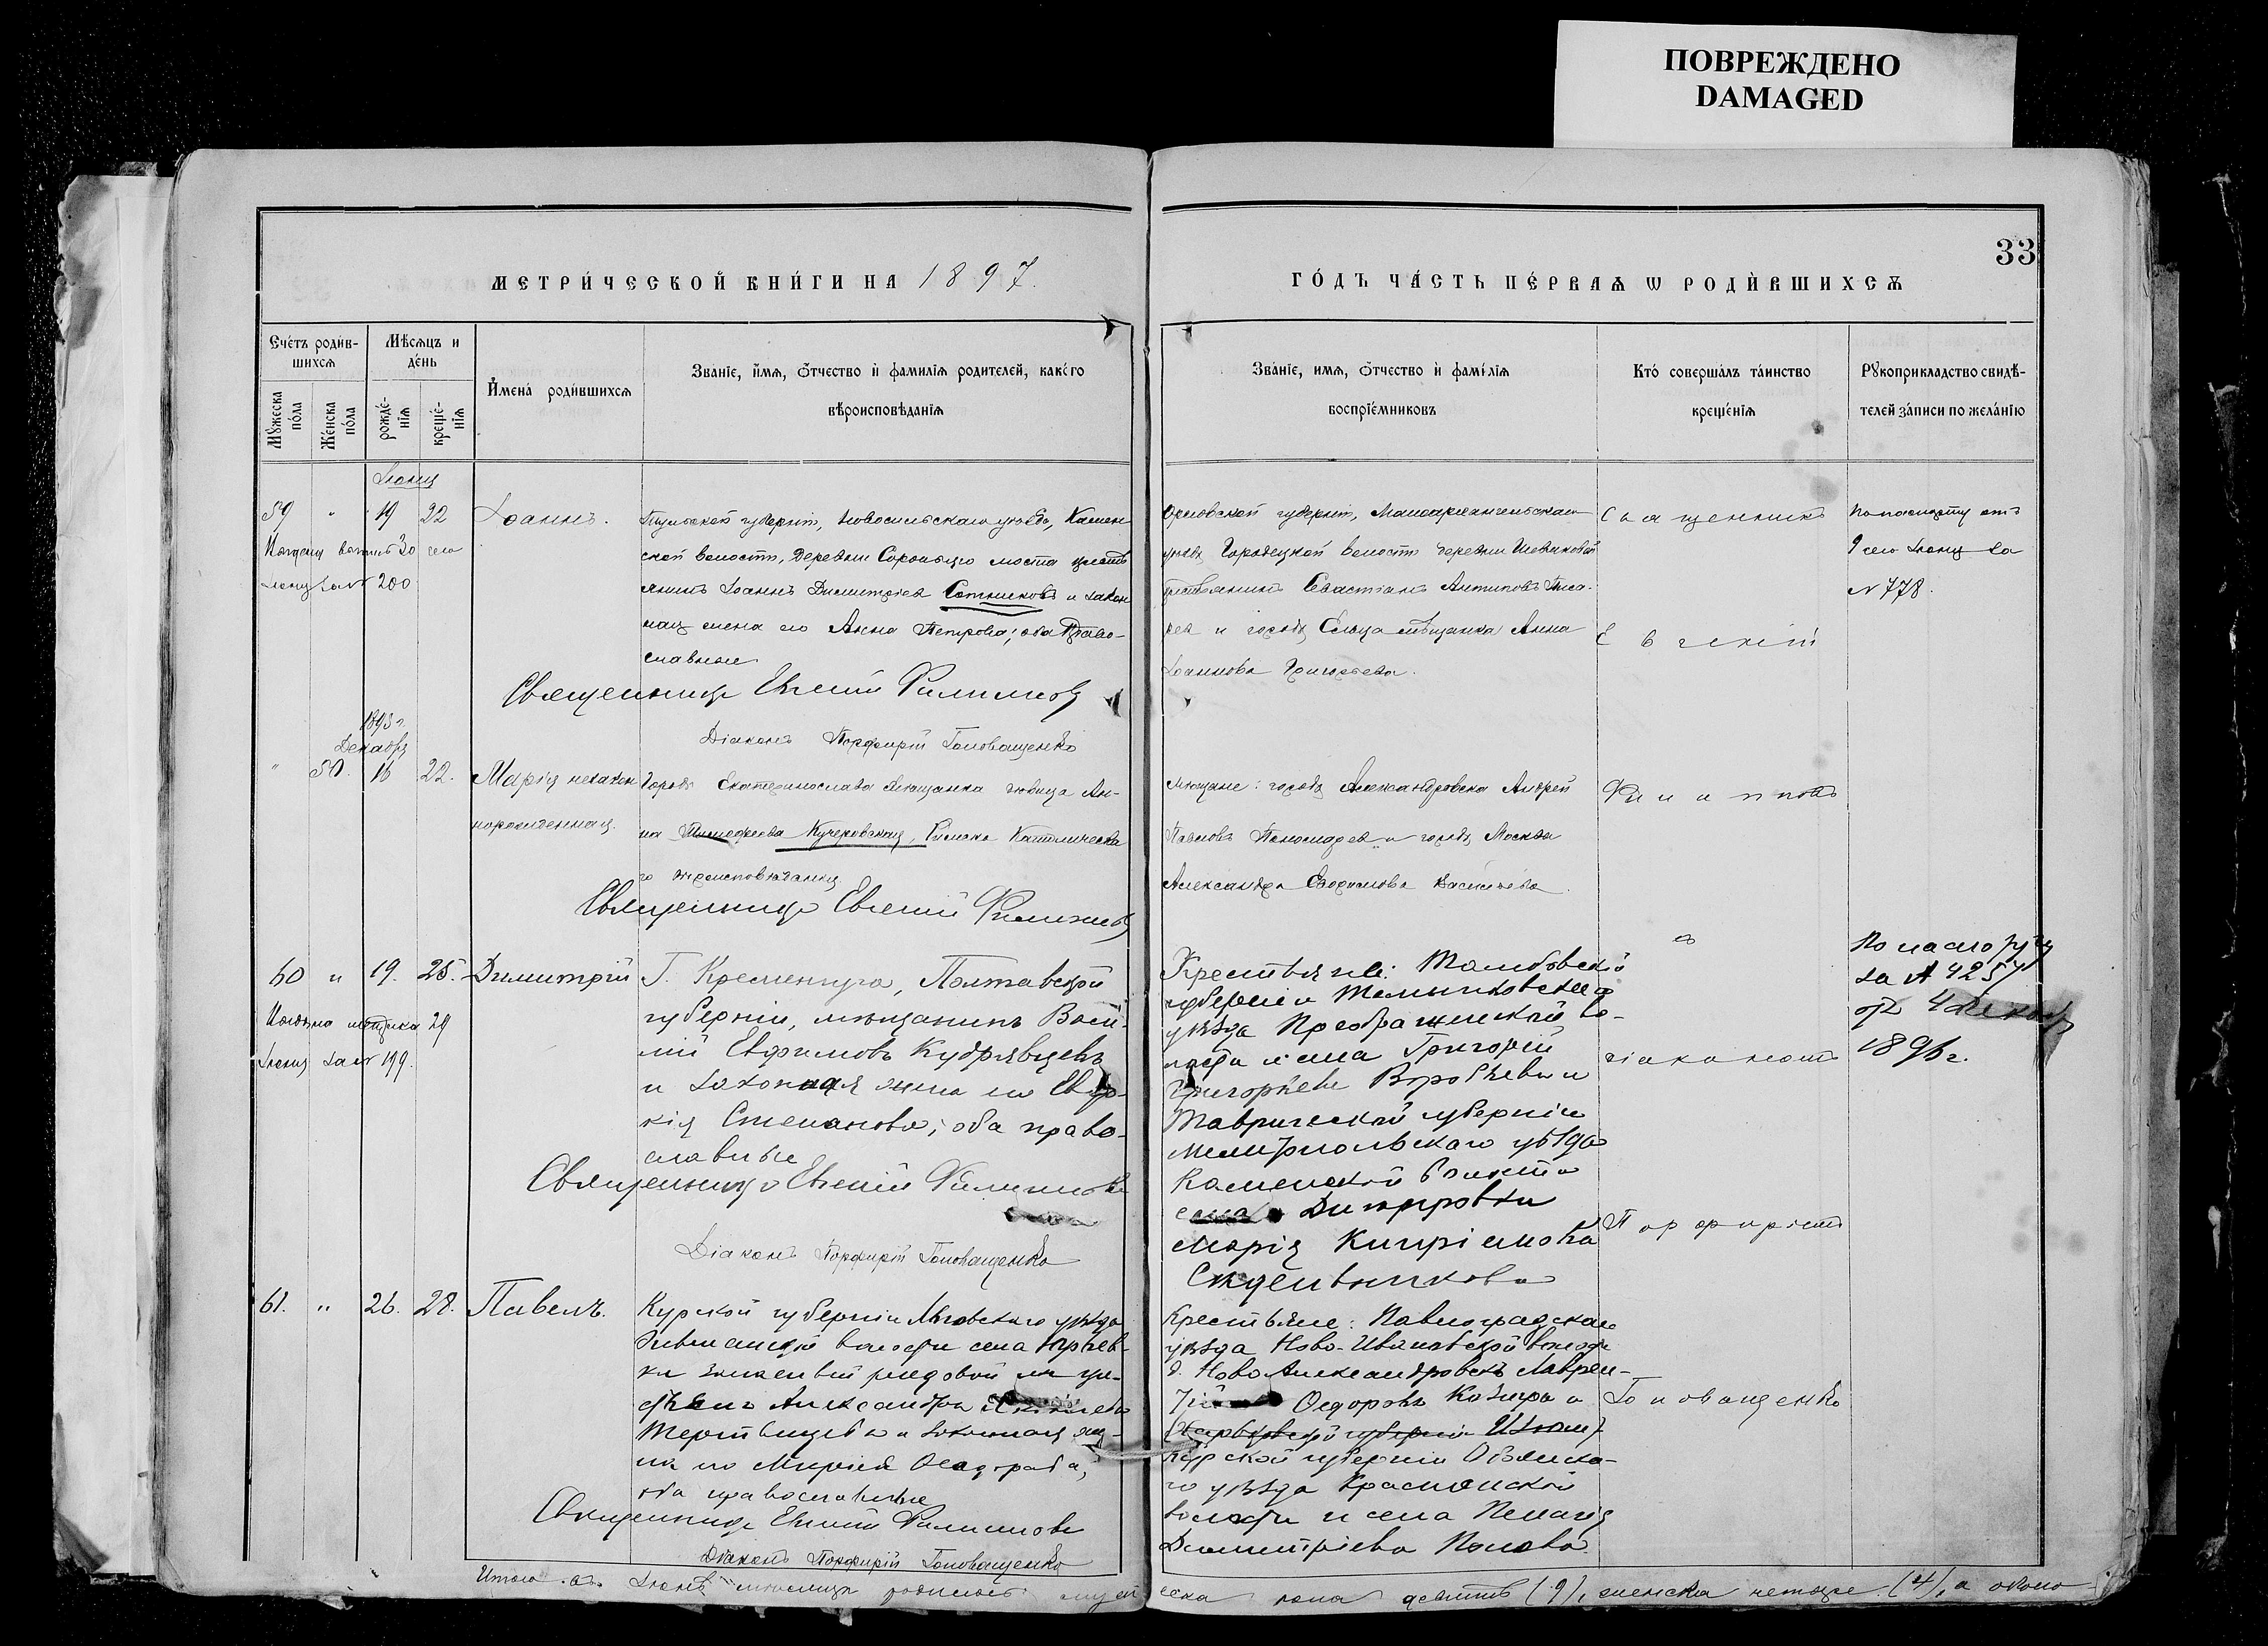 ПОВРЕЖДЕНО
DAMAGED
33
МЕТРИ́ЧЕСКОЙ КНИ́ГИ НА 1897.
ГО́ДЪ ЧА́СТЬ ПЕ́РВАѦ Ѡ РОДИ́ВШИХСѦ
Сче́тъ роди́в-
шихсѧ
Мѣ́сѧцъ и
де́нь
Мꙋ́жеска
по́ла
Же́нска
по́ла
рожде́-
нїѧ
креще́-
нїѧ
И҆мена̀ роди́вшихсѧ
Зва́нїе, и҆́мѧ, ѻ҆́тчество и҆ фами́лїѧ роди́телей, како́го
вѣроисповѣ́данїѧ
Зва́нїе, имѧ, ѻ҆́тчество и҆ фамі́лїѧ
воспрїе́мниковъ
Кто̀ соверша́лъ та́инство
креще́нїѧ
Рꙋкоприкладство свидѣ́-
телей за́писи по жела́нїю
Іюня
59 " 19 22 Іоаннъ.
Тульской губерніи, Новосильскаго уѣзда, Камен
ской волости, деревни Сорочьяго моста крестъ
янинъ Іоаннъ Димитріевъ Сотниковъ и закон
ная жена его Анна Петрова; оба Право-
славные
№ 200
Священникъ Евгеній Филимоновъ
Діаконъ Порфирій Головащенко
Орловской губерніи, Малоархангельскаго
уѣзда Городецкой волости деревни
крестьянинъ Севастіанъ Антиповъ Писа-
рев и города Ельца мѣщанка Анна
Іоаннова Григорьева.
Священникъ
Евгеній
По паспорту отъ
9 сего Іюня за
№ 778.
1893 г.
Декабря
" 50. 16 22. Марія незакон
норожденная.
Города Екатеринослава мѣщанка дѣвица Ан-
на Тимофеева Кучеровская, Римско Католическа
го вѣроисповѣданія
Священникъ Евгеній Филимоновъ
Мѣщане: города Александровска Андрей
Павловъ Пономарев и города Москвы
Александра Евдокимова Васильева.
Филимоновъ
60 " 19. 25. Димитрій
Г. Кременчуга, Полтавской
губерніи, мѣщанинъ Васи-
лій Евфимовъ Кудрявцевъ
и законная жена его Евдо-
кія Степанова; оба право-
славные
Іюня за № 199.
Священникъ Евгеній Филимоновъ
Діаконъ Порфирій Головащенко
Крестьяне: Тамбовской
губерніи Темниковскаго
уѣзда Преображенской во-
лости и села Григорій
Григорьевъ Воробьевъ и
Таврической губерніи
Мелитопольскаго уѣзда
Каменской волости
Димитровки
Марія Кипріанова
съ
діакономъ
Порфиріемъ
По паспорту
за № 4257
1896 г.
61. " 26. 28. Павелъ.
Курской губерніи Льговскаго уѣзда
волости села
запасный рядовой
Александръ
и законная же-
на его Марія Ѳеодорова,
оба православные
Священникъ Евгеній Филимоновъ
Діаконъ Порфирій Головащенко
Крестьяне: Павлоградскаго
уѣзда Ново-Ивановской волости
д. Ново Александровскъ Лаврен-
тій Ѳедоровъ Козырь и
(Харьковской губерніи Изюм)
Курской губерніи Обоянска-
го уѣзда Краснянской
волости и села Пелагія
Димитріева Попова
Головащенко
Итого въ Іюнѣ мѣсяцѣ родилось муж
еска пола девять (9), женска четыре (4), а обоего